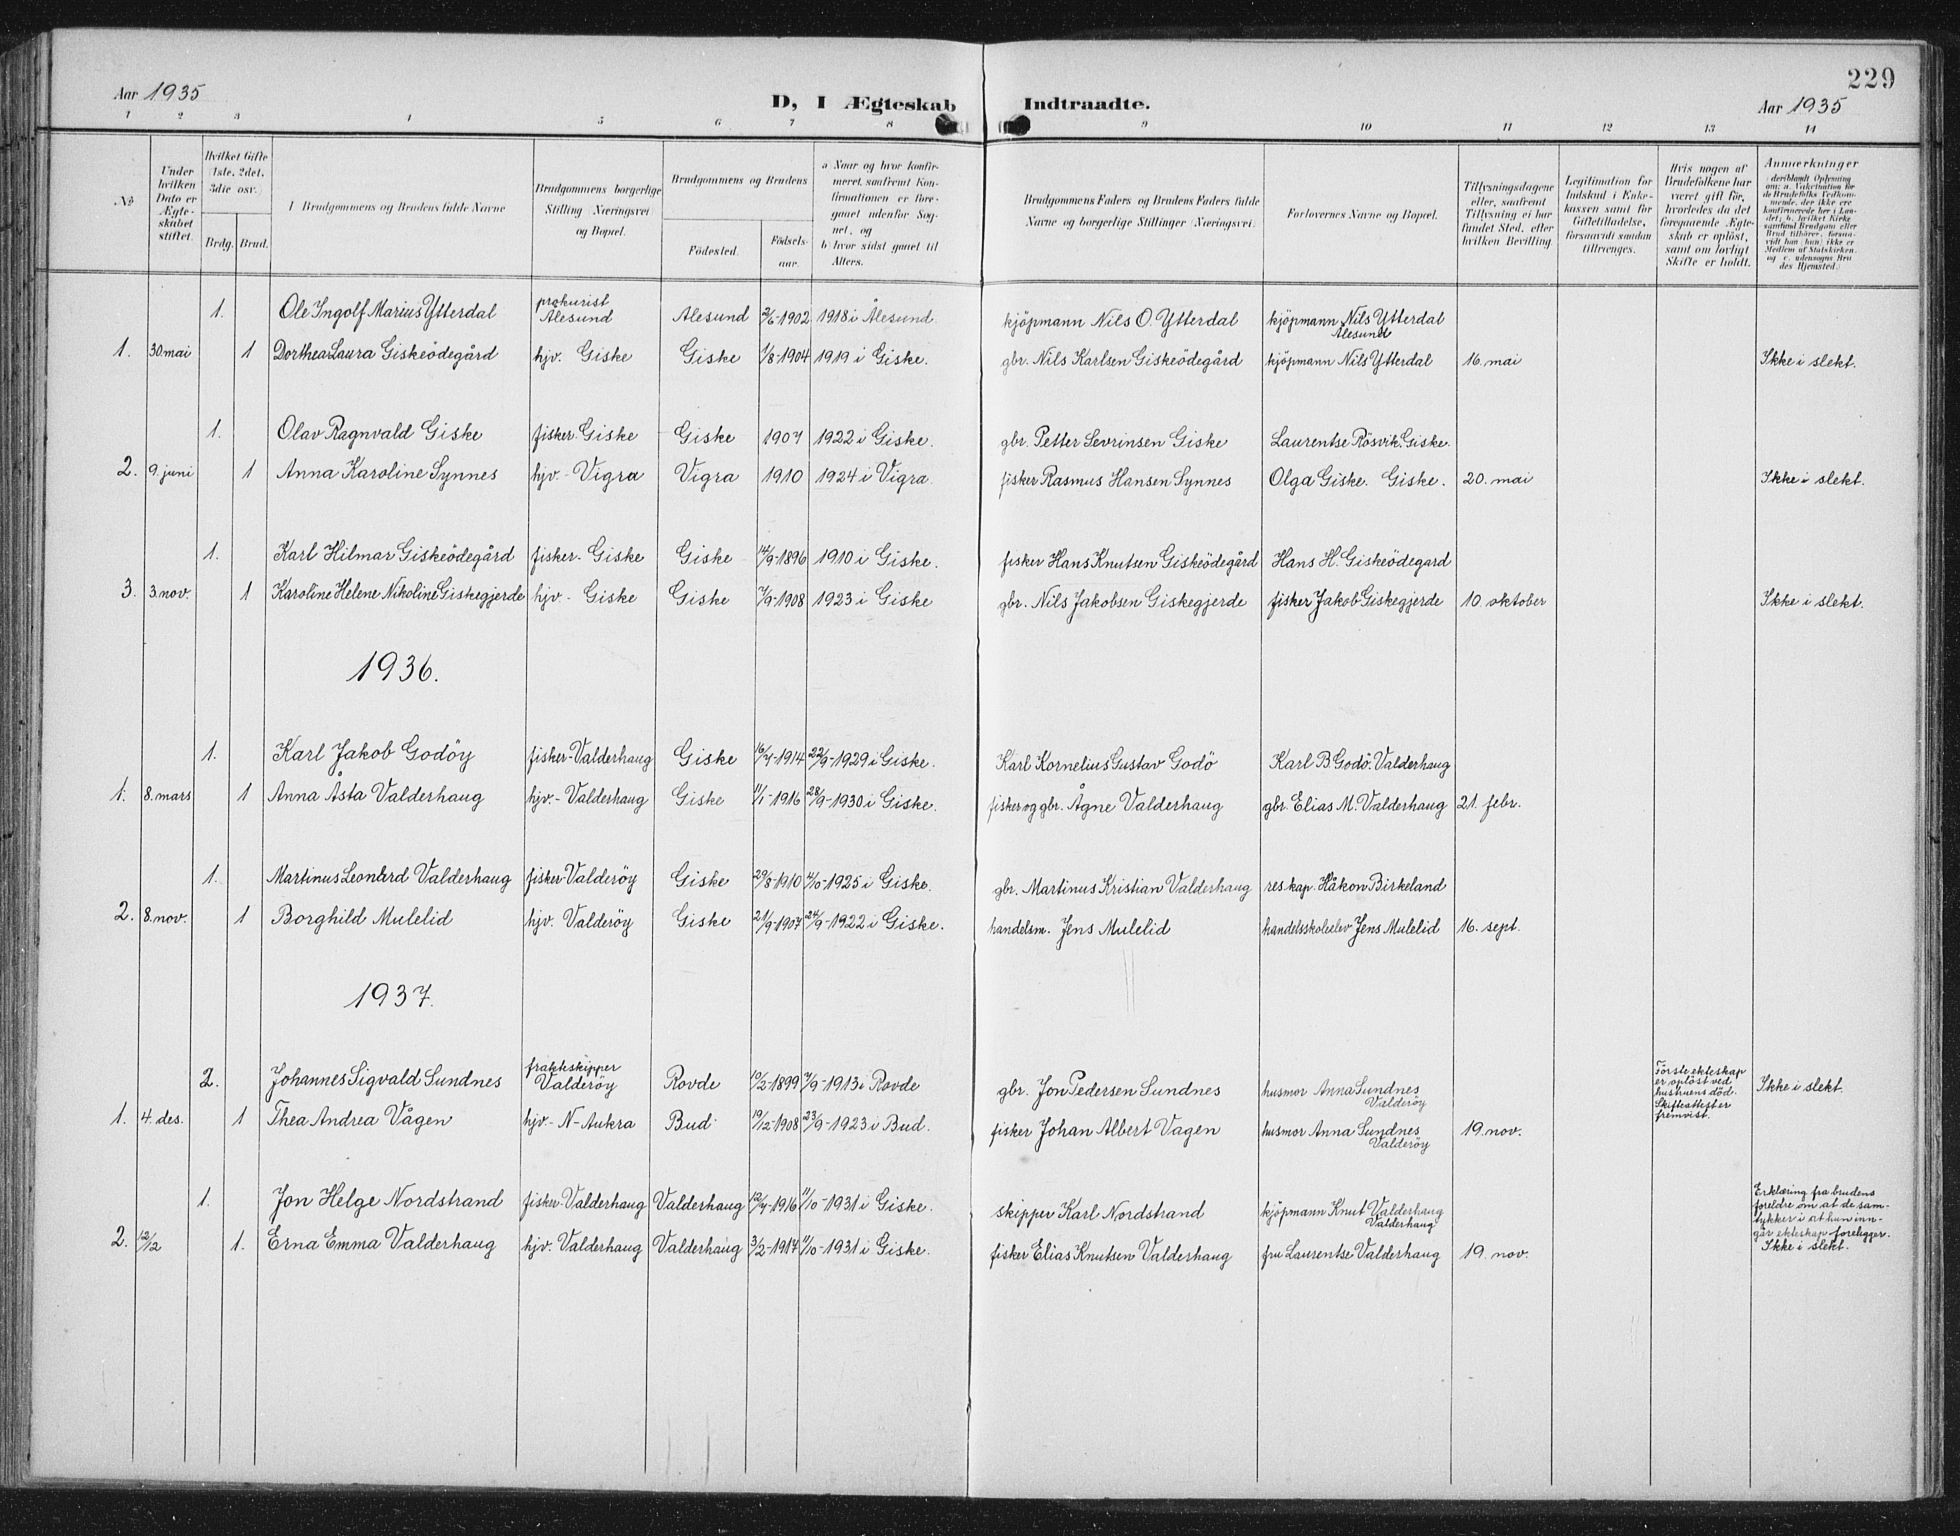 229
Aar 1935
D, I Ægteskab Indtraadte.
Aar 1935
1 2 3 4 5 6 7 8 9 10 11 12 13 14
No
Under hvilken Dato er Ægteskabet stiftet.
Hvilket Gifte 1ste, 2det, 3die osv.
Brdg. Brud.
Brudgommens og Brudens fulde Navne
Brudgommens borgerlige Stilling Næringsvei og Bopæl.
Brudgommens og Brudens
Fødested. Fødselsaar.
a Naar og hvor konfirmeret, saafremt Konfirmationen er foregaaet udenfor Sognet, og
b hvor sidst gaaet til Alters.
Brudgommens Faders og Brudens Faders fulde Navne og borgerlige Stillinger Næringsvei.
Forlovernes Navne og Bopæl.
Tillysningsdagene eller, saafremt Tillysning ei har fundet Sted, efter hvilken Bevilling
Legitimation for Indskud i Enkekassen samt for Giftetilladelse, forsaavidt saadan tiltrænges.
Hvis nogen af Brudefolkene har været gift før, hvorledes da det foregaaende Ægteskab er opløst, samt om lovligt Skifte er holdt.
Anmærkninger
1. Ole Ingolf Marius Ytterdal prokurist Ålesund Ålesund 2/6-1902 1918 i Ålesund. kjöpmann Nils O. Ytterdal kjöpmann Nils Ytterdal Ålesund
1. 30 mai 1 Dorthea Laura Giskeödegård hjv. Giske Giske 1/8-1904 1919 i Giske. gbr. Nils Karlsen Giskeödegård kjöpmann Nils Ytterdal 16. mai Ikke i slekt.
1. Olav Ragnvald Giske fisker. Giske Giske 1907 1922 i Giske. gbr. Petter Sevrinsen Giske Laurentse Rösvik. Giske.
2. 9. juni 1 Anna Karoline Synnes hjv. - Vigra Vigra 1910 1924 i Vigra. fisker Rasmus Hansen Synnes Olga Giske. Giske. 20. mai Ikke i slekt.
1. Karl Hilmar Giskeödegård fisker. Giske Giske 14/9-1896 1910 i Giske. fisker Hans Knutsen Giskeödegård Hans H. Giskeödegard
3. 3. nov. 1 Karoline Helene Nikoline Giskegjerde hjv - Giske Giske 7/9-1908 1923 i Giske gbr. Nils Jakobsen Giskegjerde fisker Jakob Giskegjerde 10. oktober Ikke i slekt.
1936.
1. Karl Jakob Godöy fisker-Valderhaug Giske 16/7-1914 22/9-1929 i Giske. Karl Kornelius Gustav Godö Karl B. Godö. Valderhaug
1. 8. mars 1 Anna Åsta Valderhaug hjv. - Valderhaug Giske 11/1-1916 28/9-1930 i Giske. fisker og gbr. Ågne Valderhaug gbr. Elias M. Valderhaug 21. febr.
1. Martinus Leonard Valderhaug fisker-Valderöy Giske 29/8-1910 4/10-1925 i Giske. gbr. Martinus Kristian Valderhaug res. kap. Håkon Birkeland
2. 8. nov. 1 Borghild Mulelid hjv. Valderöy Giske 21/9-1907 24/9-1922 i Giske. handelsm. Jens Mulelid handelsskoleelev Jens Mulelid 16. sept.
1937.
2. Johannes Sigvald Sundnes fraktskipper Valderöy Rovde 10/2-1899 7/9-1913 i Rovde gbr. Jon Pedersen Sundnes husmor Anna Sundnes Valderöy Förste ekteskap er oplöst ved hustruens död. Skifteattest er fremvist. Ikke i slekt.
1. 4. des. 1 Thea Andrea Vågen hjv. - N-Aukra Bud 19/12-1908 23/9-1923 i Bud. fisker Johan Albert Vagen husmor Anna Sundnes Valderöy 19. nov.
1. Jon Helge Nordstrand fisker-Valderhaug Valderhaug 12/7-1916 11/10-1931 i Giske. skipper Karl Nordstrand kjöpmann Knut Valderhaug Valderhaug Erklæring fra brudens foreldre om at de samtykker i at hun inngår ekteskap foreligger. Ikke i slekt.
2. 12/12 1. Erna Emma Valderhaug hjv. Valderhaug Valderhaug 3/2-1917 11/10-1931 i Giske. fisker Elias Knutsen Valderhaug fru Laurentse Valderhaug 19. nov.